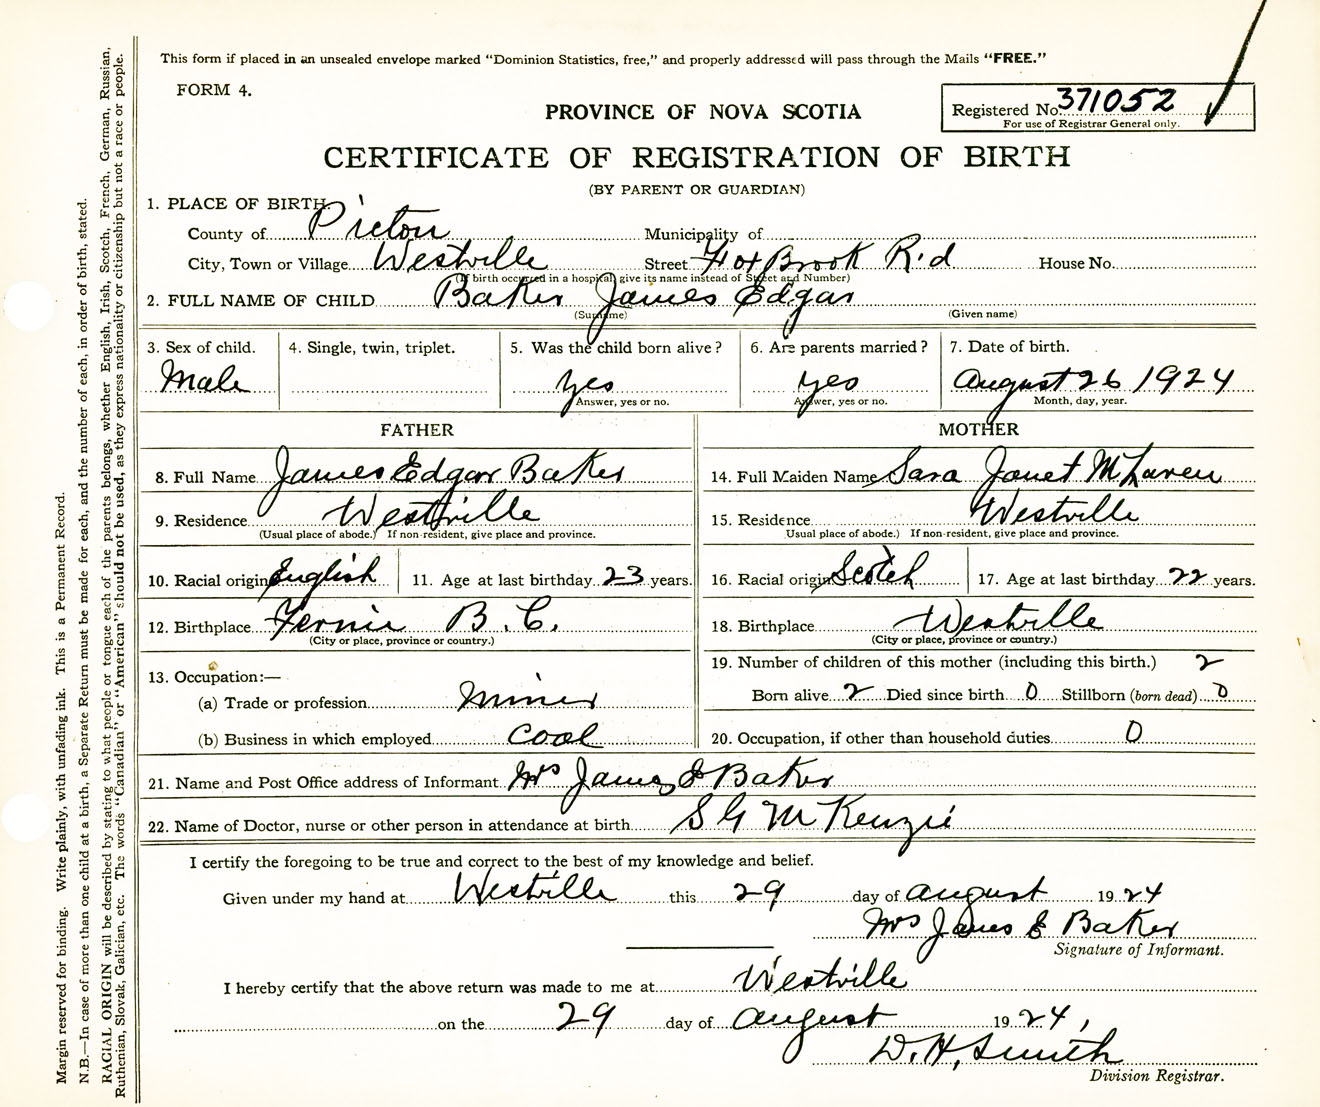 This form if placed in an unsealed envelope marked "Dominion Statistics, free," and properly addressed will pass through the Mails "FREE."
FORM 4.
Registered No. 371052
For use of Registrar General only.
PROVINCE OF NOVA SCOTIA
CERTIFICATE OF REGISTRATION OF BIRTH
(BY PARENT OR GUARDIAN)
1. PLACE OF BIRTH.
County of Pictou Municipality of
City, Town or Village Westville Street Fox Brook R.d House No.
(If birth occurred in a hospital, give its name instead of Street and Number)
2. FULL NAME OF CHILD Baker James Edgar
(Surname) (Given name)
3. Sex of child. 4. Single, twin, triplet. 5. Was the child born alive? 6. Are parents married? 7. Date of birth.
Male yes yes August 26 1924
Answer, yes or no. Answer, yes or no. Month, day, year.
FATHER MOTHER
8. Full Name James Edgar Baker 14. Full Maiden Name Sara Janet McLaren
9. Residence Westville 15. Residence Westville
(Usual place of abode.) If non-resident, give place and province. Usual place of abode.) If non-resident, give place and province.
10. Racial origin English 11. Age at last birthday 23 years. 16. Racial origin Scotch 17. Age at last birthday 22 years.
12. Birthplace Fernie B.C. 18. Birthplace Westville
(City or place, province or country.) (City or place, province or country.)
13. Occupation:— 19. Number of children of this mother (including this birth.) 2
(a) Trade or profession Miner Born alive 2 Died since birth 0 Stillborn (born dead) 0
(b) Business in which employed Coal 20. Occupation, if other than household duties 0
21. Name and Post Office address of Informant Mrs James E Baker
22. Name of Doctor, nurse or other person in attendance at birth S G McKenzie
I certify the foregoing to be true and correct to the best of my knowledge and belief.
Given under my hand at Westville this 29 day of August 1924
Mrs James E Baker
Signature of Informant.
I hereby certify that the above return was made to me at Westville
on the 29 day of August 1924,
D. H. Smith
Division Registrar.
Margin reserved for binding. Write plainly, with unfading ink. This is a Permanent Record.
N.B.—In case of more than one child at a birth, a Separate Return must be made for each, and the number of each, in order of birth, stated.
RACIAL ORIGIN will be described by stating to what people or tongue each of the parents belongs, whether English, Irish, Scotch, French, German, Russian,
Ruthenian, Slovak, Galician, etc. The words "Canadian" or "American" should not be used, as they express nationality or citizenship but not a race or people.